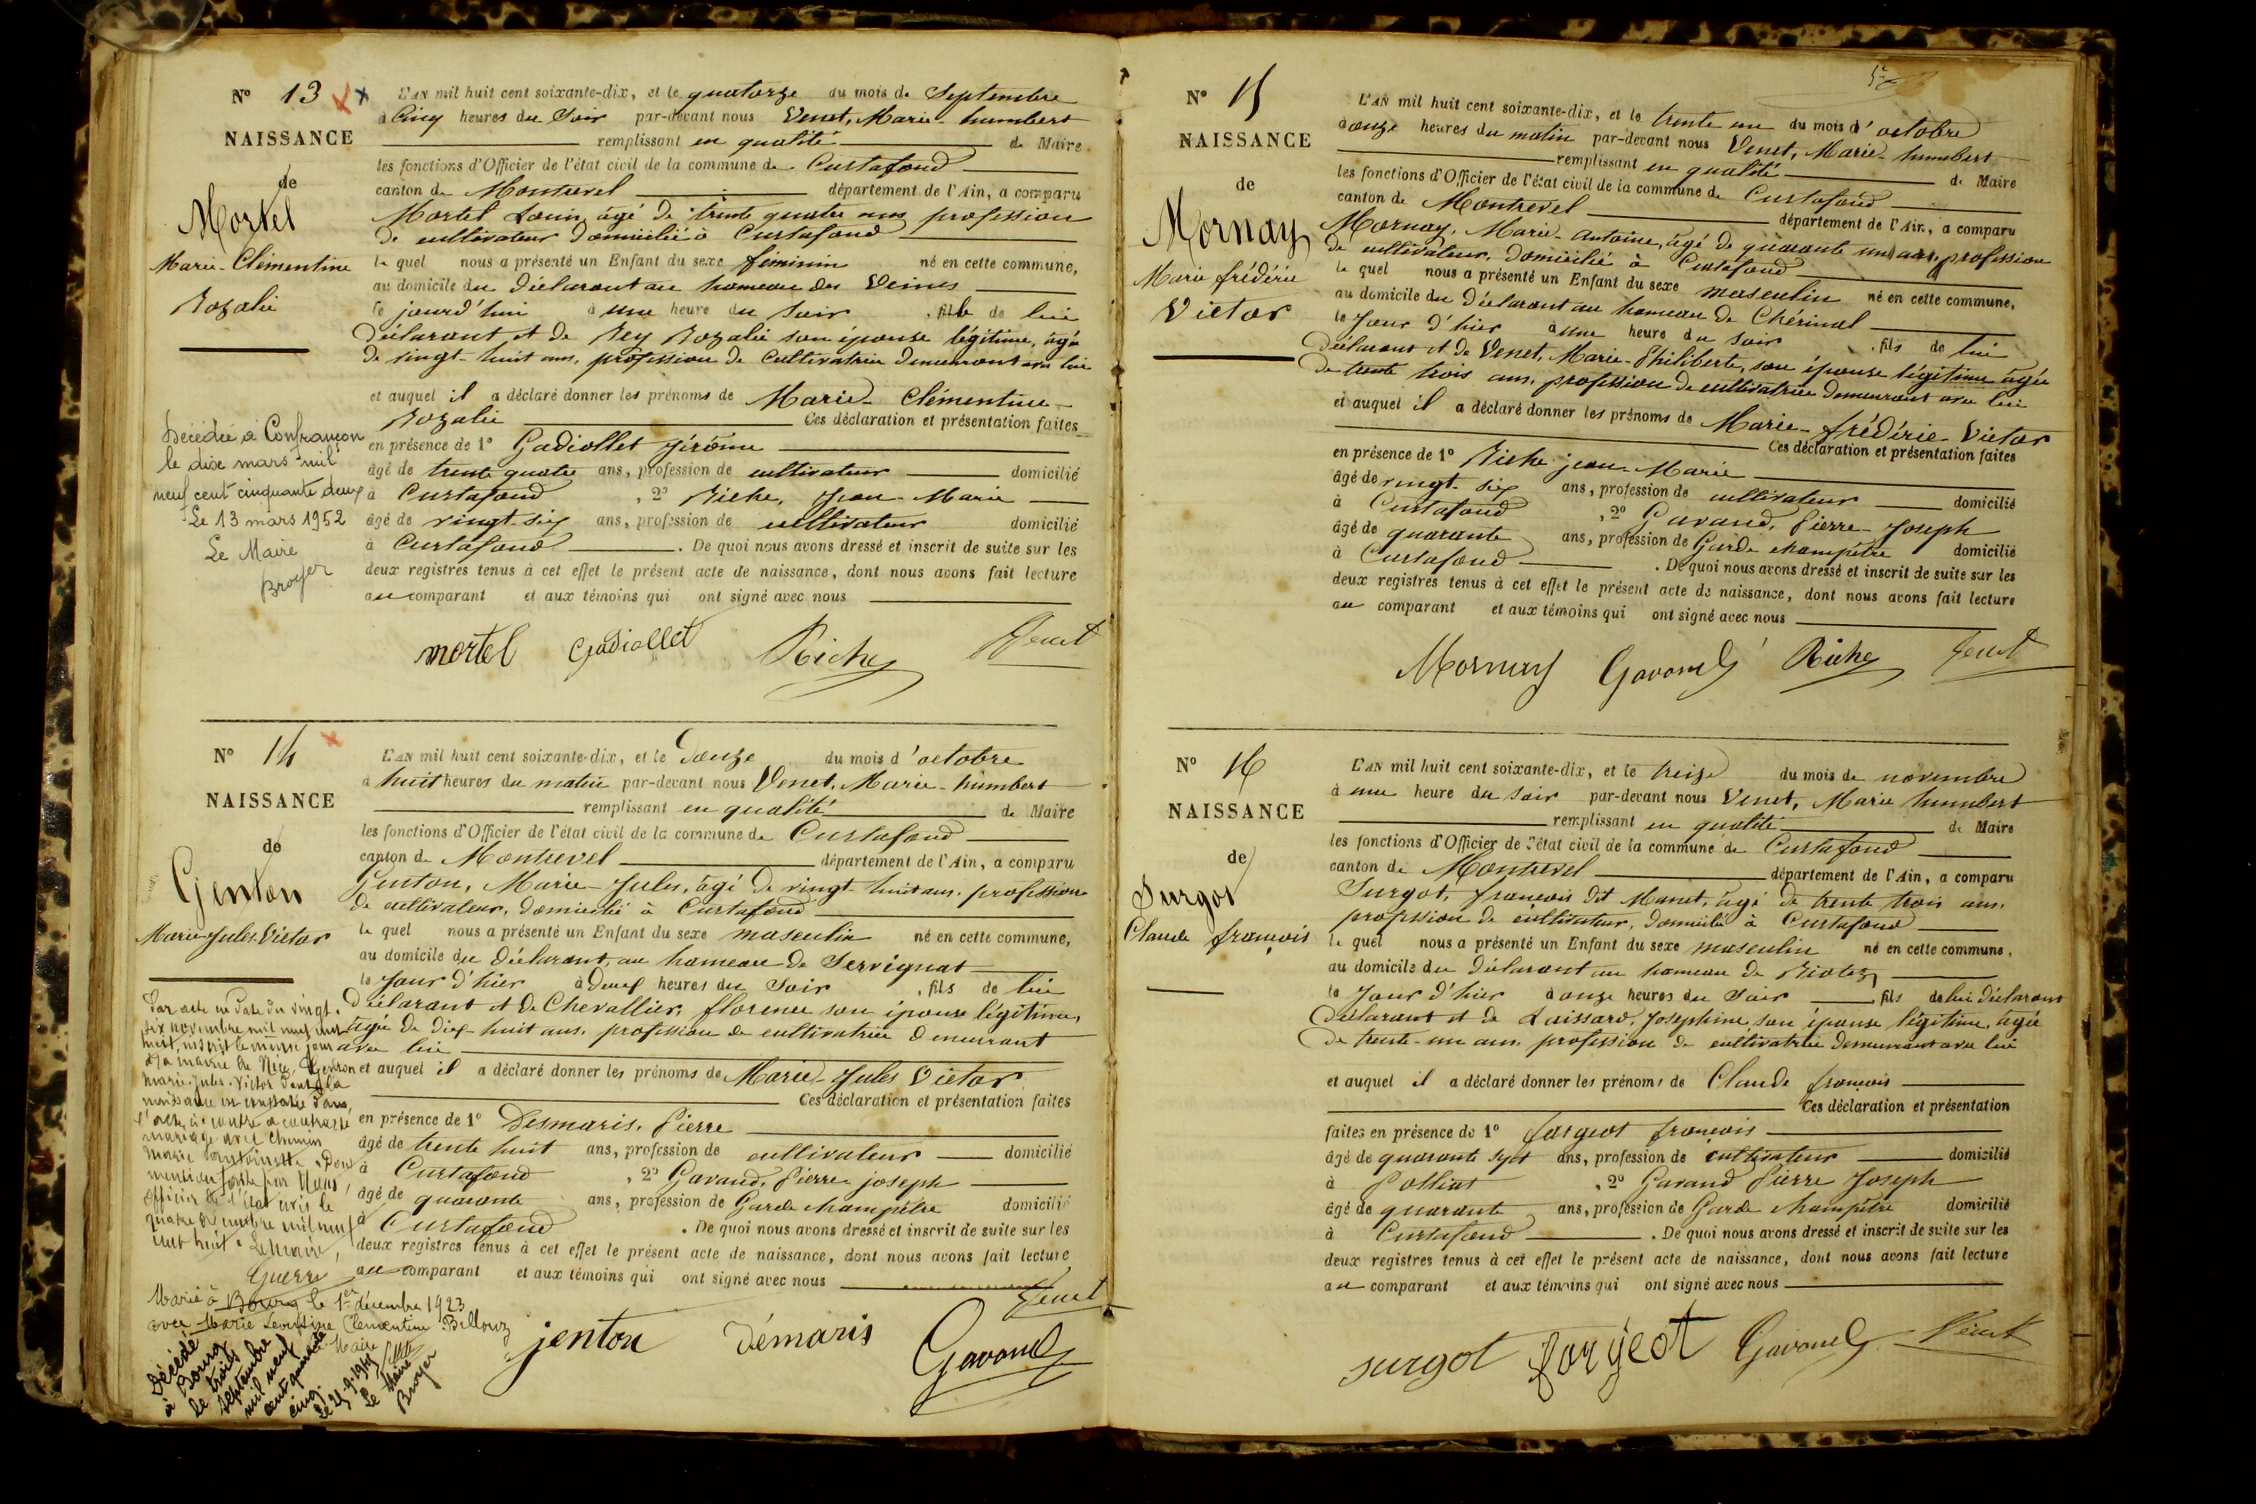 Nº 13
NAISSANCE
de
Mortel
Marie-Clémentine
Rozalie
L'AN mil huit cent soixante-dix, et le quatorze du mois de Septembre
à Cinq heures du Soir par-devant nous Venet, Marie-humbert
remplissant en qualité de Maire
les fonctions d'Officier de l'état civil de la commune de Curtafond
canton de Montrevel département de l'Ain, a comparu
Mortel Louis, âgé de trente quatre ans profession
de cultivateur domicilié à Curtafond
le quel nous a présenté un Enfant du sexe féminin né en cette commune,
au domicile du déclarant au hameau des Veines
le jourd'hui à une heure du Soir , fille de lui
déclarant et de Rey Rozalie son épouse légitime, âgée
de vingt-huit ans, profession de Cultivatrice demeurant avec lui
et auquel il a déclaré donner les prénoms de Marie-Clémentine-
Rozalie Ces déclaration et présentation faites
en présence de 1º Gadiollet jérôme
âgé de trente quatre ans, profession de cultivateur domicilié
à Curtafond , 2º Riche, Jean-Marie
âgé de vingt-six ans, profession de cultivateur domicilié
à Curtafond . De quoi nous avons dressé et inscrit de suite sur les
deux registres tenus à cet effet le présent acte de naissance, dont nous avons fait lecture
au comparant et aux témoins qui ont signé avec nous
mortel Gadiollet Riche Venet
Décédée à Confrançon
le dix mars mil
neuf cent cinquante deux
Le 13 mars 1952
Le Maire
Broyer
Nº 14
NAISSANCE
de
Genton
Marie-Jules Victor
L'AN mil huit cent soixante-dix, et le Douze du mois d'octobre
à huit heures du matin par-devant nous Venet, Marie-humbert
remplissant en qualité de Maire
les fonctions d'Officier de l'état civil de la commune de Curtafond
canton de Montrevel département de l'Ain, a comparu
Genton, Marie-Jules, âgé de vingt huit ans, profession
de cultivateur, domicilié à Curtafond
le quel nous a présenté un Enfant du sexe masculin né en cette commune,
au domicile du déclarant, au hameau de Servignat
le Jour d'hier à Deux heures du Soir , fils de lui
déclarant et de Chevallier, florence son épouse légitime,
âgée de dix-huit ans, profession de cultivatrice demeurant
avec lui
et auquel il a déclaré donner les prénoms de Marie-Jules Victor
Ces déclaration et présentation faites
en présence de 1º Desmaris, Pierre
âgé de trente huit ans, profession de cultivateur domicilié
à Curtafond , 2º Gavand, Pierre joseph
âgé de quarante ans, profession de Garde champêtre domicilié
à Curtafond . De quoi nous avons dressé et inscrit de suite sur les
deux registres tenus à cet effet le présent acte de naissance, dont nous avons fait lecture
au comparant et aux témoins qui ont signé avec nous
Venet
jenton démaris Gavand
Par acte en date du vingt
six novembre mil neuf cent
huit, inscrit le même jour
à la mairie de Nice, Genton
Marie-Jules-Victor dont la
naissance est constatée dans
l'acte ci-contre a contracté
mariage avec Chemin
Marie Antoinette. Dont
mention faite par Nous
officier de l'état civil le
quatre décembre mil neuf
cent huit. Le Maire,
Guerre
Marié à Bourg le 1er décembre 1923
avec Marie Clémentine Billouz
Maire
Décédé
à Bourg
le trois
septembre
mil neuf
cent quarante
cinq.
Le Maire
Broyer
Nº 15
NAISSANCE
de
Mornay
Marie frédéric
Victor
L'AN mil huit cent soixante-dix, et le trente un du mois d'octobre
à onze heures du matin par-devant nous Venet, Marie-humbert
remplissant en qualité de Maire
les fonctions d'Officier de l'état civil de la commune de Curtafond
canton de Montrevel département de l'Ain, a comparu
Mornay, Marie-Antoine, âgé de quarante un ans, profession
de cultivateur, domicilié à Curtafond
le quel nous a présenté un Enfant du sexe masculin né en cette commune,
au domicile du déclarant au hameau de Chérinal
le Jour d'hier à une heure du Soir , fils de lui
déclarant et de Venet, Marie-Philiberte, son épouse légitime âgée
de trente trois ans, profession de cultivatrice demeurant avec lui
et auquel il a déclaré donner les prénoms de Marie-frédéric-Victor
Ces déclaration et présentation faites
en présence de 1º Riche jean-Marie
âgé de vingt-six ans, profession de cultivateur domicilié
à Curtafond , 2º Gavand, Pierre-Joseph
âgé de quarante ans, profession de Garde champêtre domicilié
à Curtafond . De quoi nous avons dressé et inscrit de suite sur les
deux registres tenus à cet effet le présent acte de naissance, dont nous avons fait lecture
au comparant et aux témoins qui ont signé avec nous
Mornay Gavand Riche Venet
Nº 16
NAISSANCE
de
Surgot
Claude françois
L'AN mil huit cent soixante-dix, et le treize du mois de novembre
à une heure du Soir par-devant nous Venet, Marie humbert
remplissant en qualité de Maire
les fonctions d'Officier de l'état civil de la commune de Curtafond
canton de Montrevel département de l'Ain, a comparu
Surgot, françois dit Manet, âgé de trente trois ans,
profession de cultivateur, domicilié à Curtafond
le quel nous a présenté un Enfant du sexe masculin né en cette commune,
au domicile du déclarant au hameau de Riotez
le Jour d'hier à onze heures du Soir , fils de lui déclarant
déclarant et de Laissard, Josephine, son épouse légitime, âgée
de trente-un ans profession de cultivatrice demeurant avec lui
et auquel il a déclaré donner les prénoms de Claude françois
Ces déclaration et présentation
faites en présence de 1º fargeot françois
âgé de quarante sept ans, profession de cultivateur domicilié
à Polliat , 2º Gavand Pierre Joseph
âgé de quarante ans, profession de Garde champêtre domicilié
à Curtafond . De quoi nous avons dressé et inscrit de suite sur les
deux registres tenus à cet effet le présent acte de naissance, dont nous avons fait lecture
au comparant et aux témoins qui ont signé avec nous
surgot forgeot Gavand Venet